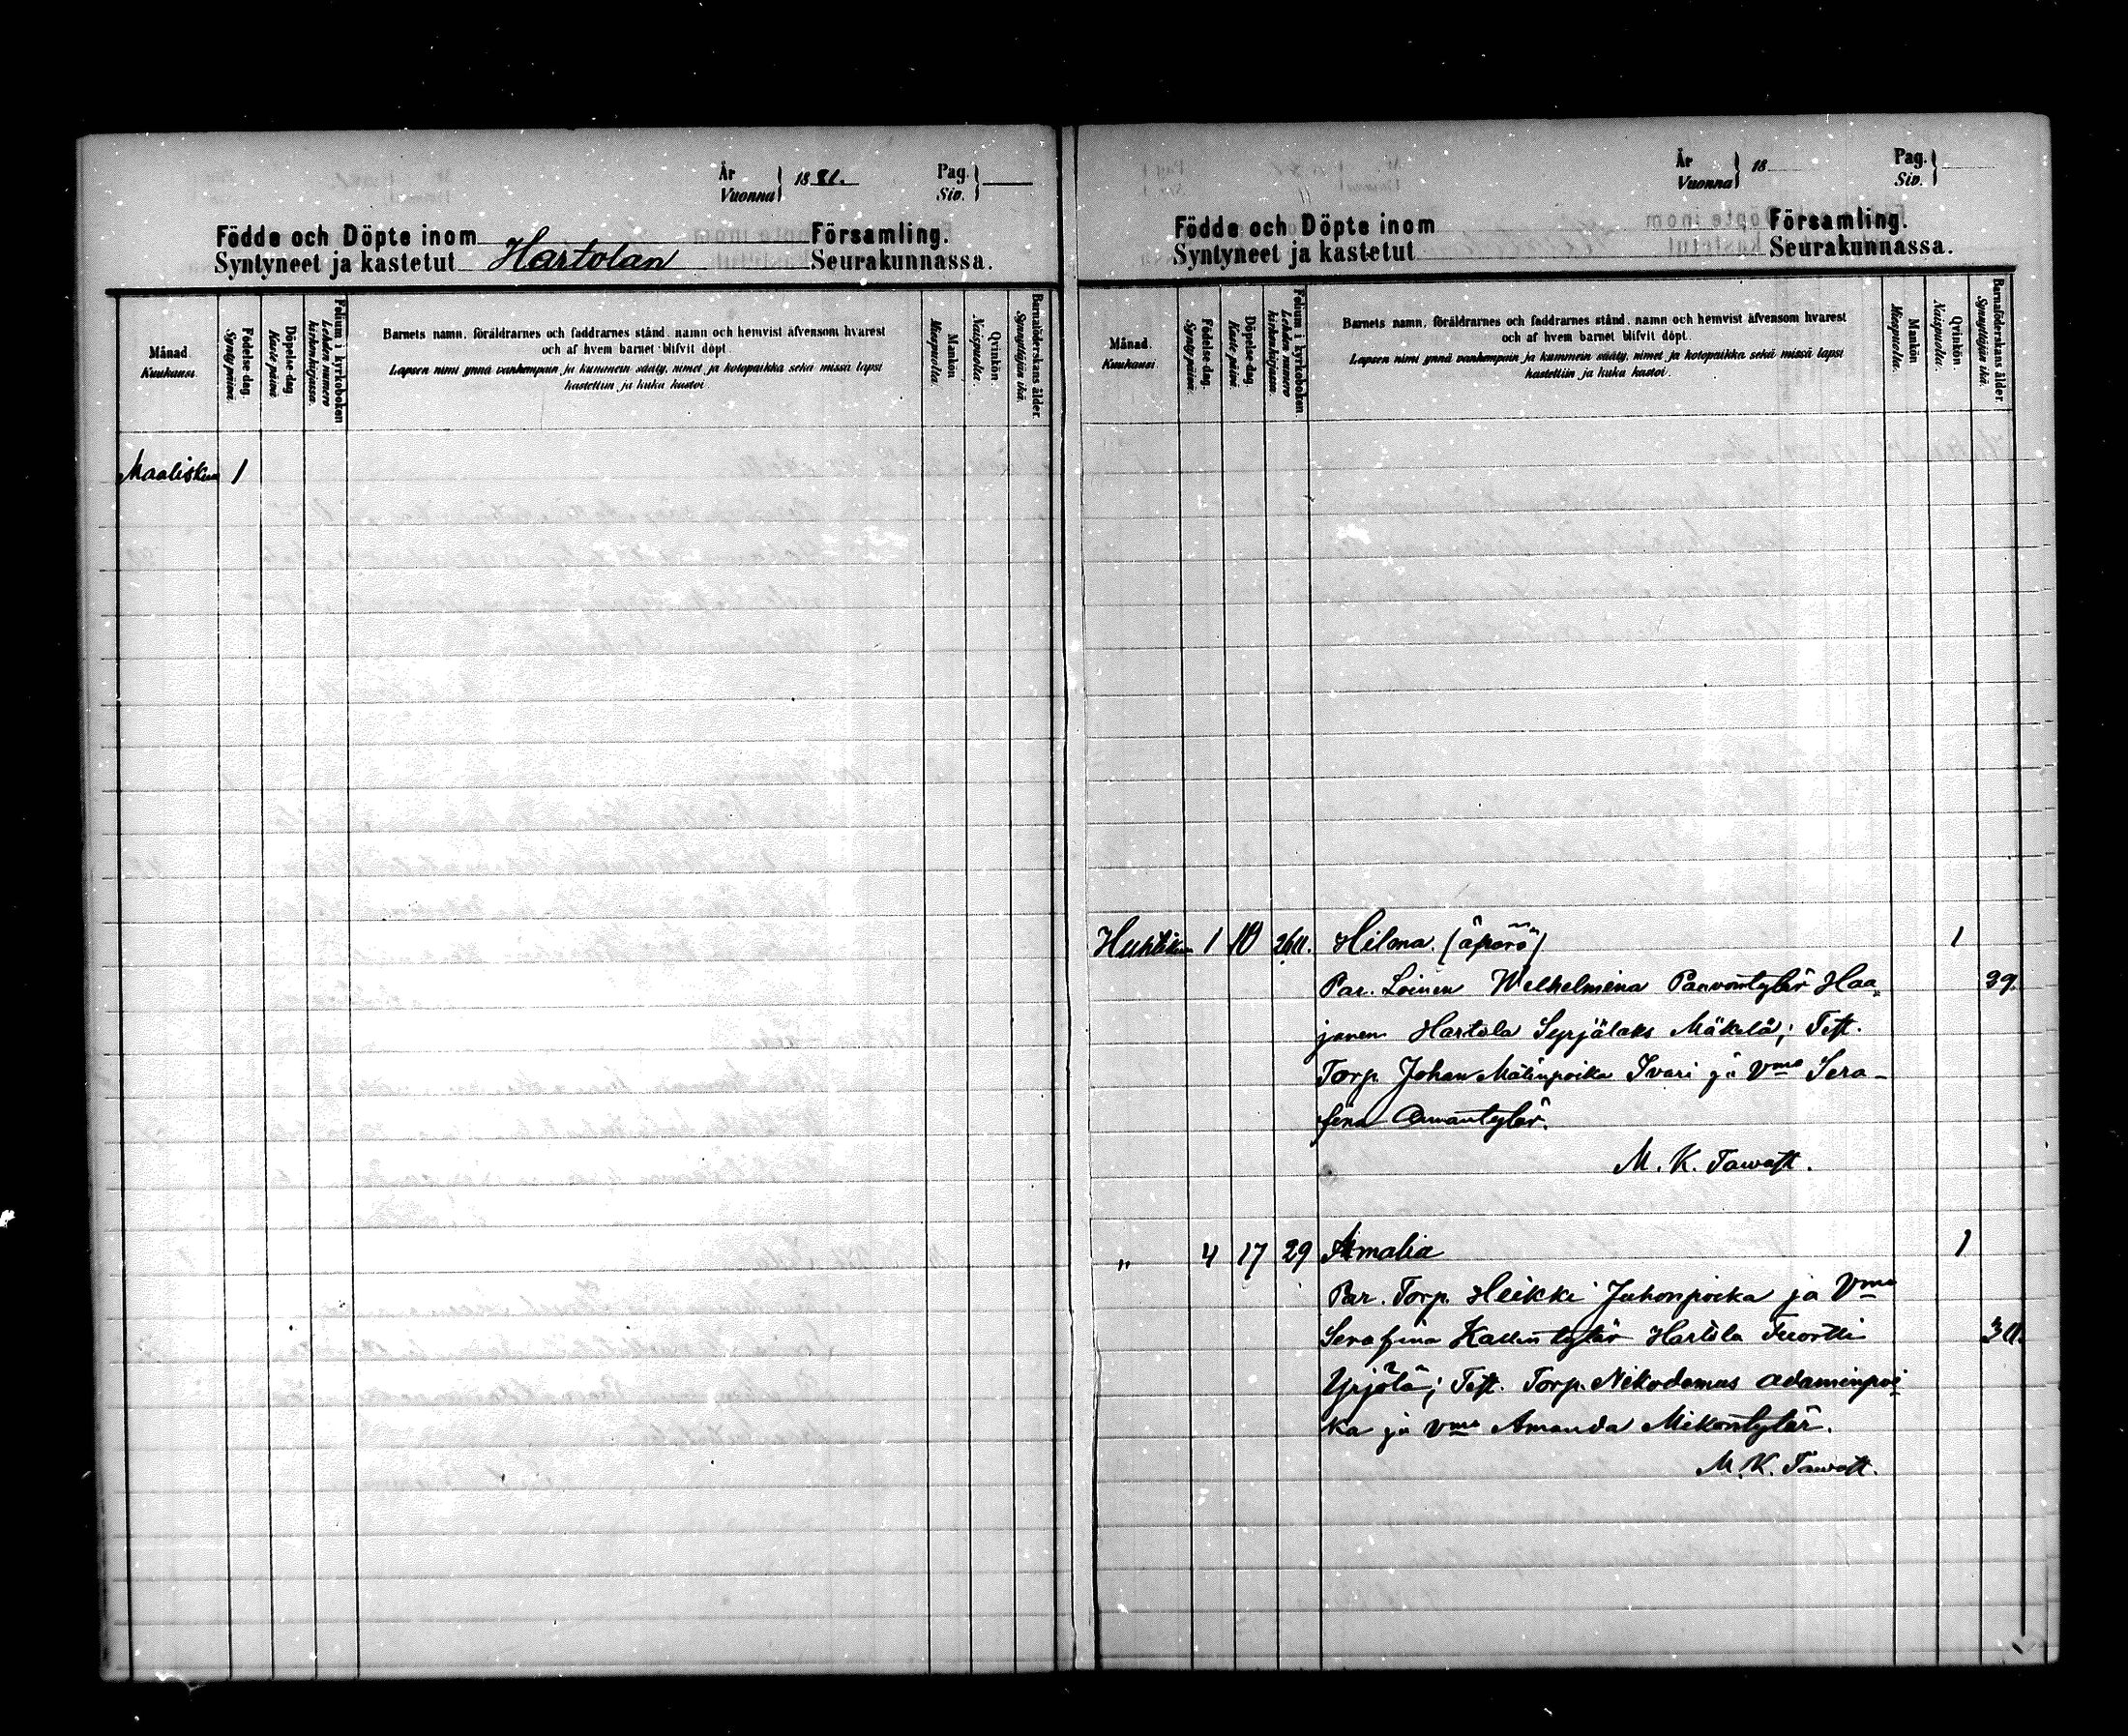 År
Vuonna } 1881.
Pag.
Siv. }
Födde och Döpte inom Församling.
Syntyneet ja kastetut Hartolan Seurakunnassa.
Månad.
Kuukausi.
Födelse-dag.
Synty-päivä.
Döpelse-dag.
Kaste-päivä.
Folium i kyrkoboken
Lehden numero
kirkonkirjassa.
Barnets namn, föräldrarnes och faddrarnes stånd, namn och hemvist äfvensom hvarest
och af hvem barnet blifvit döpt.
Lapsen nimi ynnä vanhempain ja kummein sääty, nimet ja kotopaikka sekä missä lapsi
kastettiin ja kuka kastoi.
Mankön.
Miespuolta.
Qvinkön.
Naispuolta.
Barnaföderskans ålder.
Synnyttäjän ikä.
Maalisku 1
År
Vuonna } 18
Pag.
Siv. }
Födde och Döpte inom Församling.
Syntyneet ja kastetut Seurakunnassa.
Månad.
Kuukausi.
Födelse-dag.
Synty-päivä.
Döpelse-dag.
Kaste-päivä.
Folium i kyrkoboken.
Lehden numero
kirkonkirjassa.
Barnets namn, föräldrarnes och faddrarnes stånd, namn och hemvist äfvensom hvarest
och af hvem barnet blifvit döpt.
Lapsen nimi ynnä vanhempain ja kummein sääty, nimet ja kotopaikka sekä missä lapsi
kastettiin ja kuka kastoi.
Mankön
Miespuolta.
Qvinkön.
Naispuolta.
Barnaföderskans ålder.
Synnyttäjän ikä.
Huhtiku 1 10 Hilma. (äpärä) 1
Par. Loinen Welhelmina Paavontytär Haa- 39.
janen Hartola Syrjälaks Mäkelä; Test.
Torp. Johan Matinpoika Ivari ja Vmo Sera-
fina
M. K. Tawast.
" 4 17 29 Amalia 1
Par. Torp. Heikki Juhonpoika ja Vmo
Serafina Kallentytär Hartola Tuortti
Yrjölä; Test. Torp. Nikodemus Adaminpoi-
ka ja Vmo Amanda Mikontytär.
M. K. Tawast.